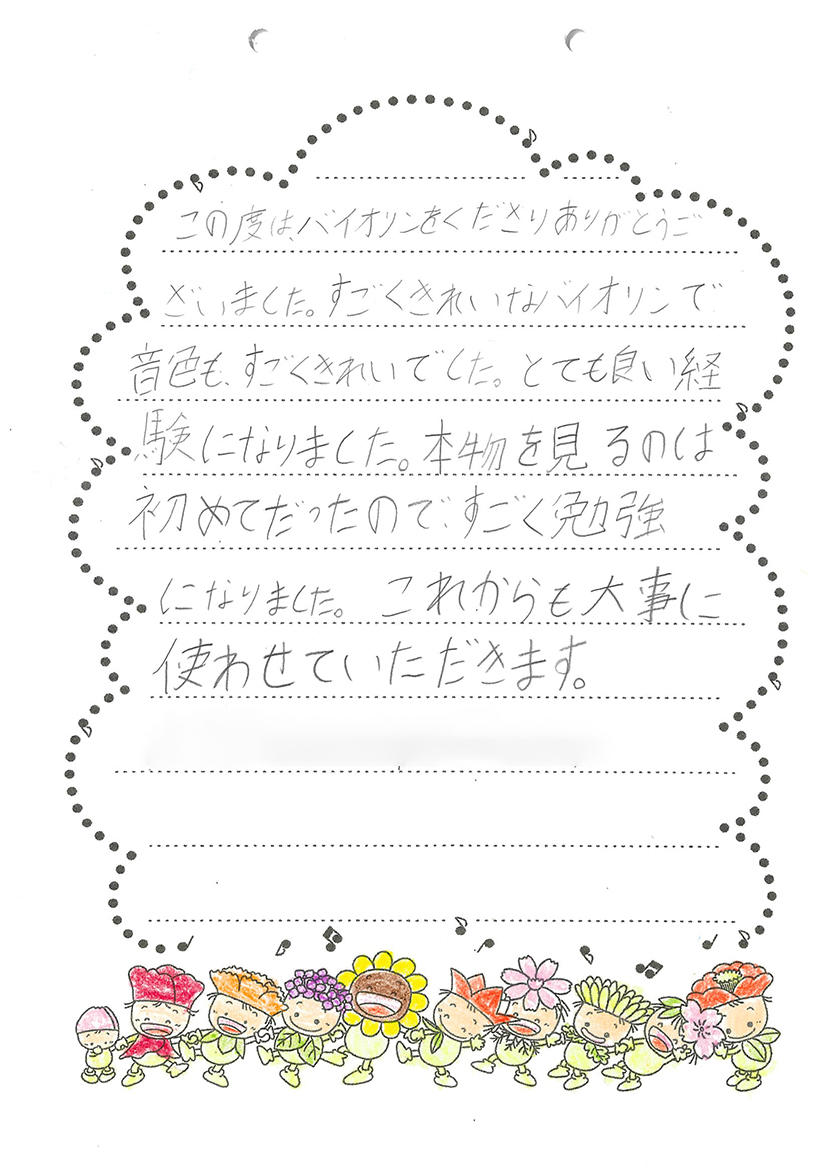 この度は、バイオリンをくださりありがとうご
ざいました。すごくきれいなバイオリンで
音色も、すごくきれいでした。とても良い経
験になりました。本物を見るのは
初めてだったので、すごく勉強
になりました。これからも大事に
使わせていただきます。